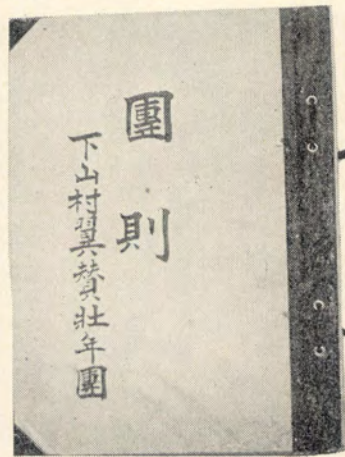 團則
下山村翼賛壯年團